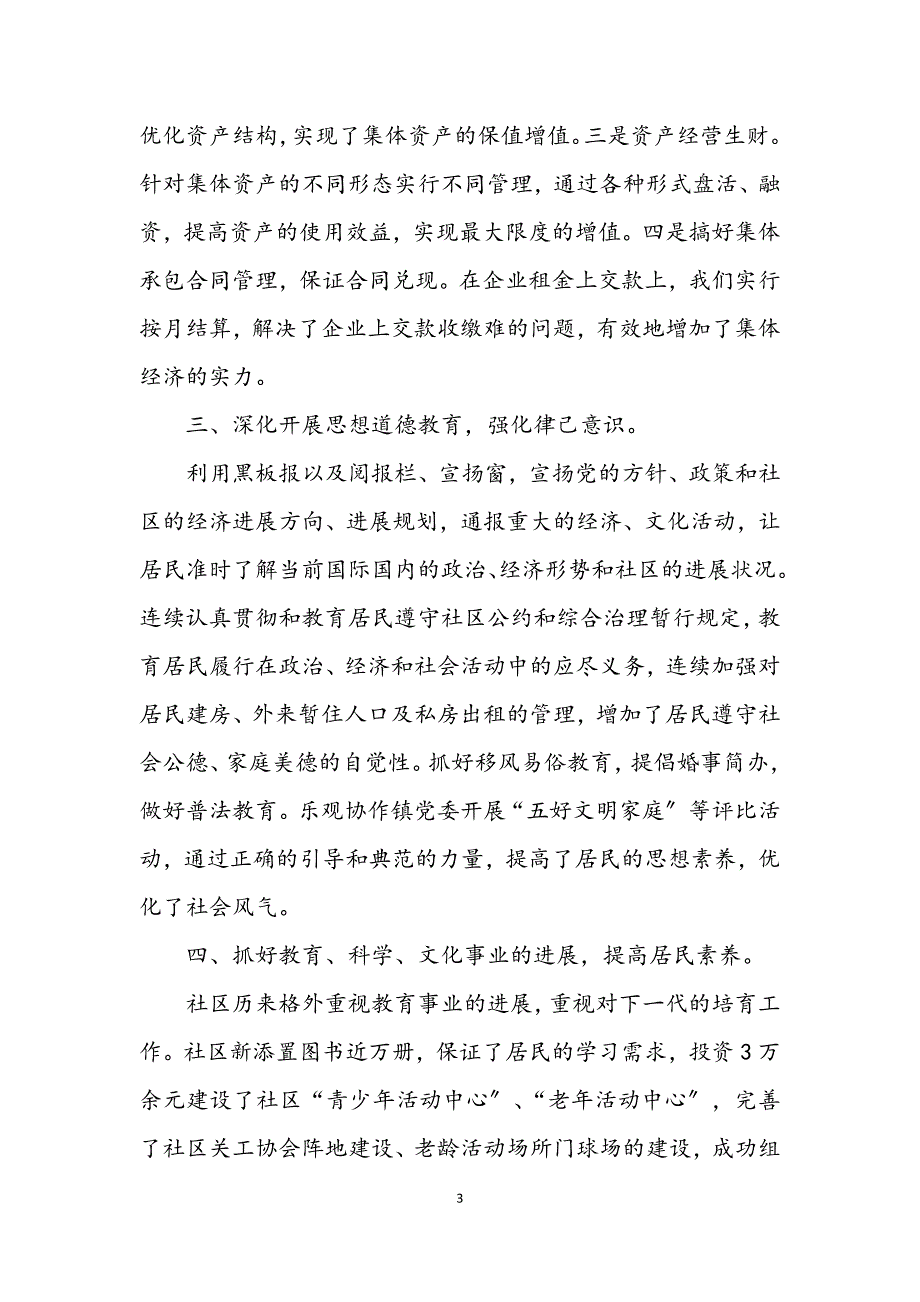 优化资产结构，实现了集体资产的保值增值。三是资产经营生财。
针对集体资产的不同形态实行不同管理，通过各种形式盘活、融
资，提高资产的使用效益，实现最大限度的增值。四是搞好集体
承包合同管理，保证合同兑现。在企业租金上交款上，我们实行
按月结算，解决了企业上交款收缴难的问题，有效地增加了集体
经济的实力。
三、深化开展思想道德教育，强化律己意识。
利用黑板报以及阅报栏、宣扬窗，宣扬党的方针、政策和社
区的经济进展方向、进展规划，通报重大的经济、文化活动，让
居民准时了解当前国际国内的政治、经济形势和社区的进展状况。
连续认真贯彻和教育居民遵守社区公约和综合治理暂行规定，教
育居民履行在政治、经济和社会活动中的应尽义务，连续加强对
居民建房、外来暂住人口及私房出租的管理，增加了居民遵守社
会公德、家庭美德的自觉性。抓好移风易俗教育，提倡婚事简办，
做好普法教育。乐观协作镇党委开展“五好文明家庭〞等评比活
动，通过正确的引导和典范的力量，提高了居民的思想素养，优
化了社会风气。
四、抓好教育、科学、文化事业的进展，提高居民素养。
社区历来格外重视教育事业的进展，重视对下一代的培育工
作。社区新添置图书近万册，保证了居民的学习需求，投资 3 万
余元建设了社区“青少年活动中心〞、“老年活动中心〞，完善
了社区关工协会阵地建设、老龄活动场所门球场的建设，成功组
3